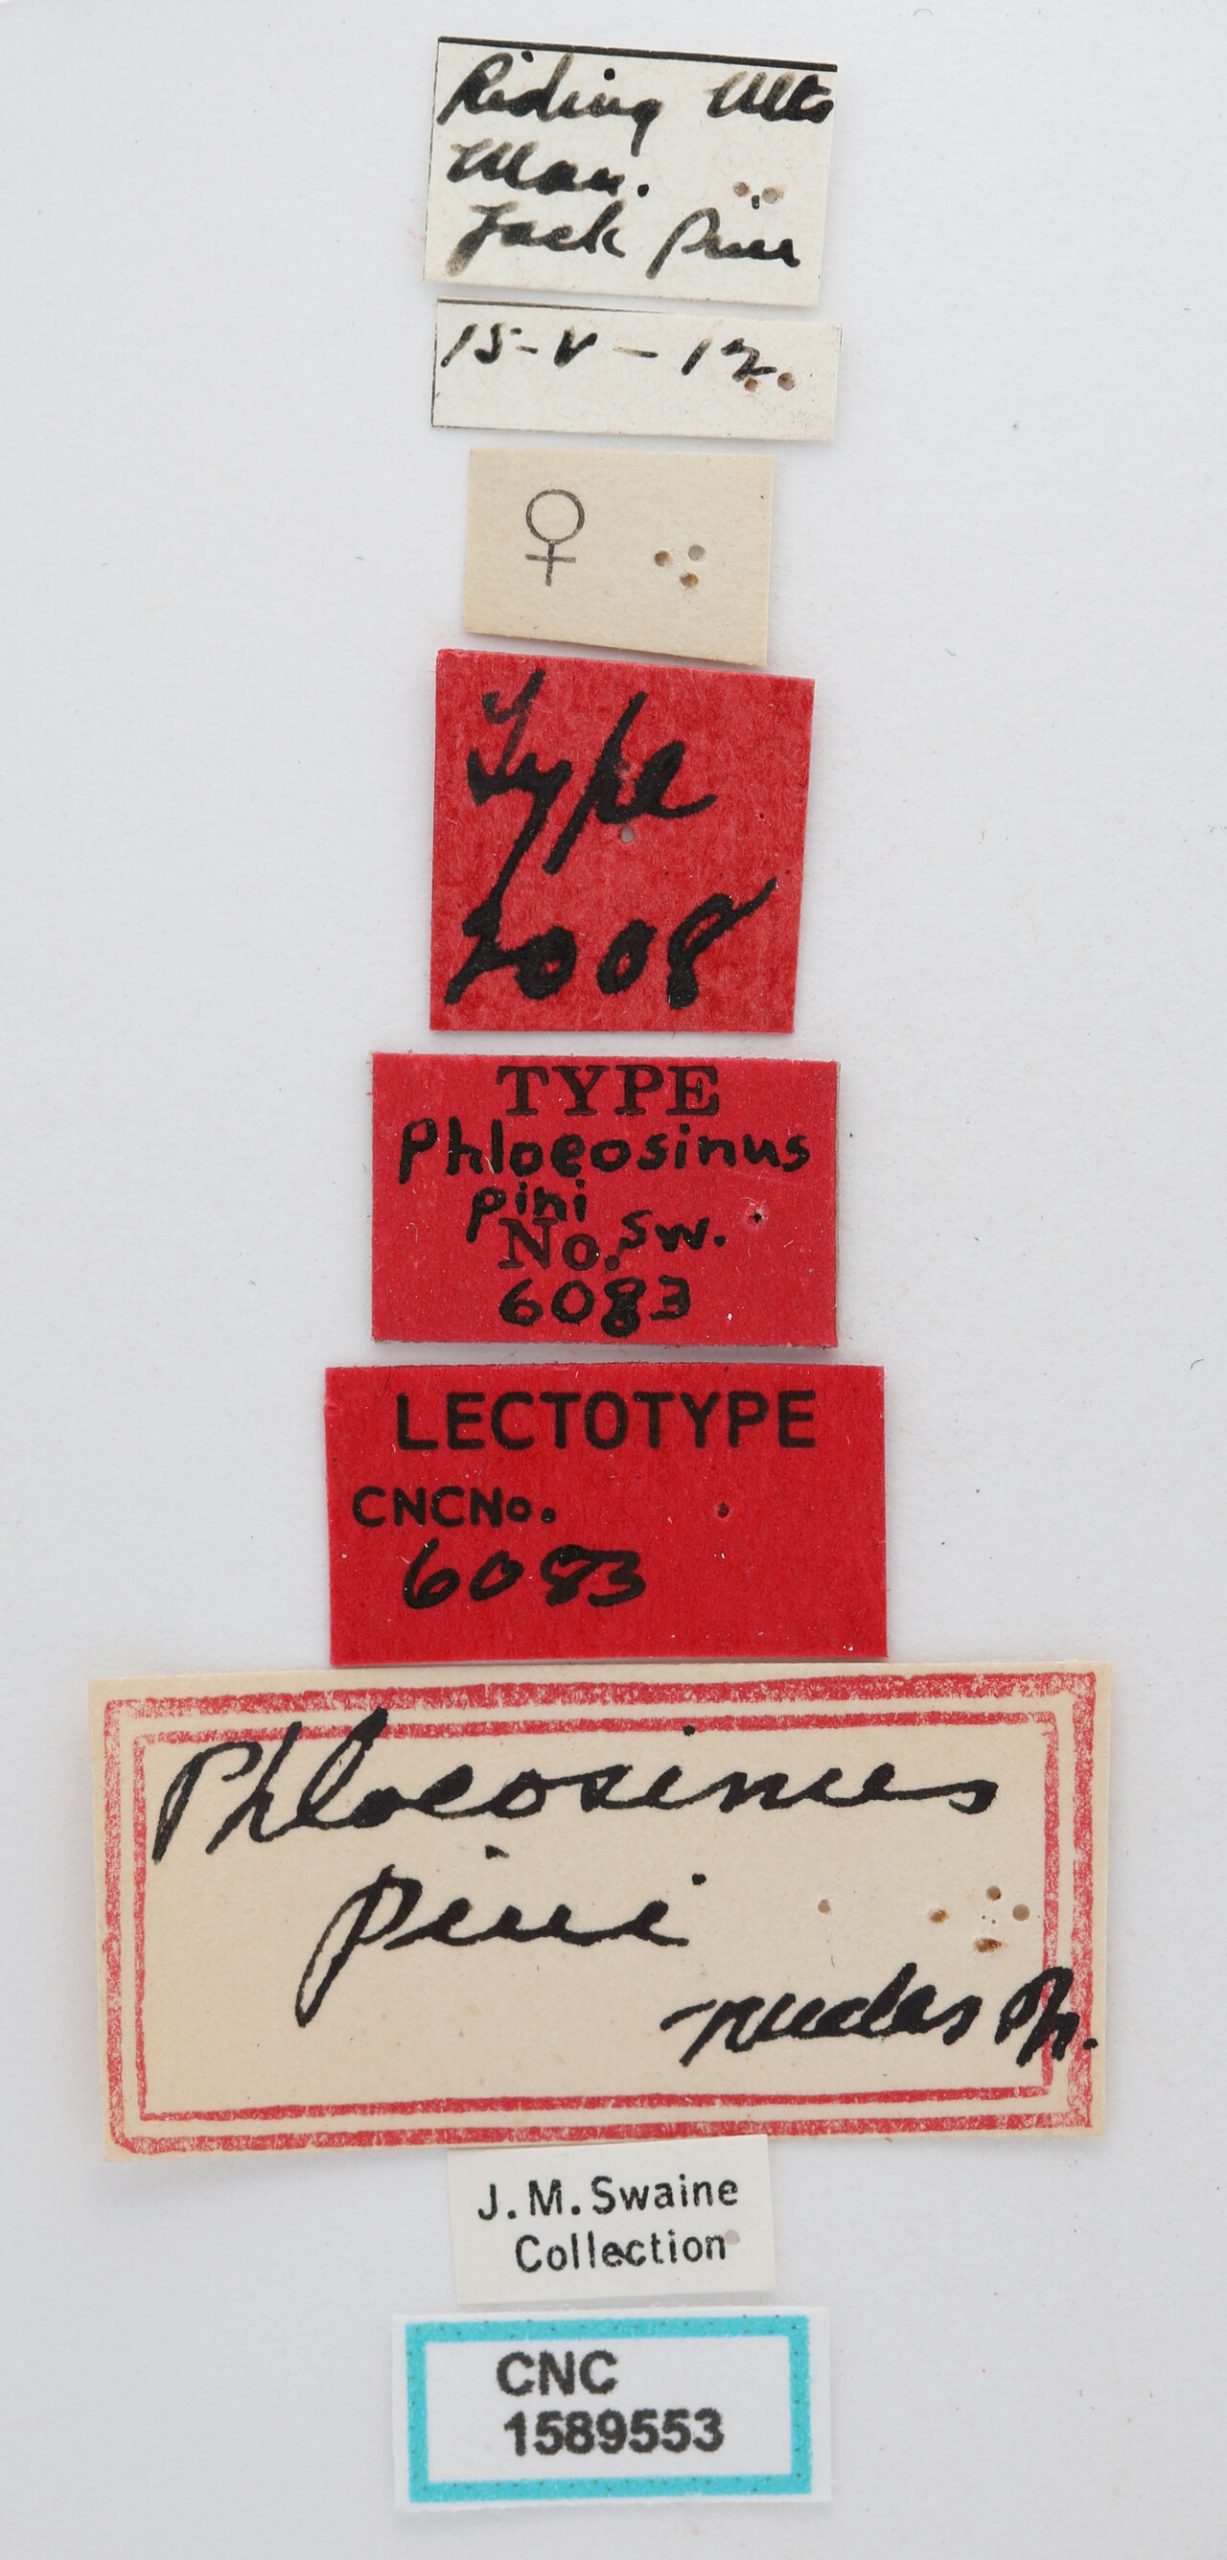 Riding Mts
Man.
Jack Pine
15-V-12.
♀
Type
2008
TYPE
Phloeosinus
pini
No. Sw.
6083
LECTOTYPE
CNCNo.
6083
Phloeosinus
pini
J.M.Swaine
Collection
CNC
1589553